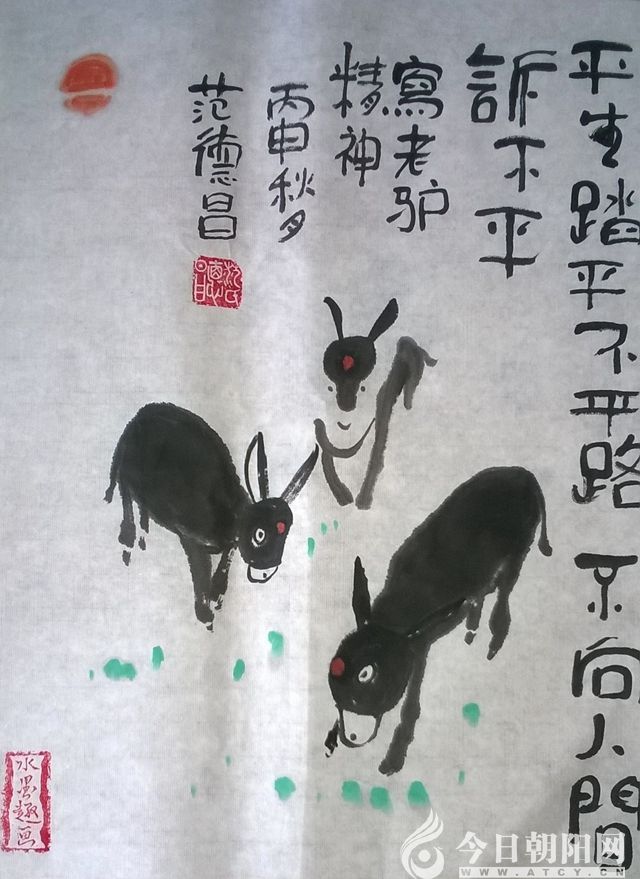 平生踏平不平路 不向人間
訴不平
寫老驴
精神
丙申秋月
范德昌
水墨趣画
今日朝阳网
WWW.ATCY.CN